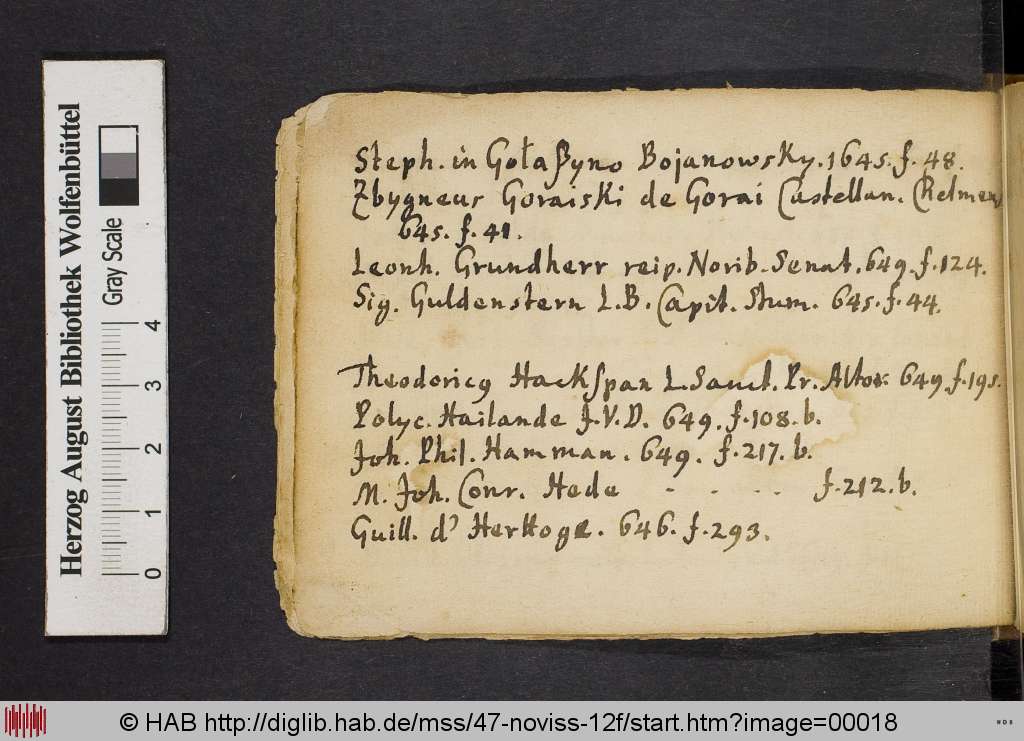 Steph. in Gołaßyno Bojanowsky. 1645. f. 48.
Zbygneus Goraiski de Gorai Castellan. Chelmens
645. f. 41.
Leonh. Grundherr reip. Norib. Senat. 649. f. 124.
Sig. Guldenstern L.B. Capit. Stum. 645. f. 44.
Theodoricg Hackſpan L. Sanct. Pr. Altor. 649. f. 195.
Polyc. Hailande J.V.D. 649. f. 108. b.
Joh. Phil. Hamman. 649. f. 217. b.
M. Joh. Conr. Hede - . . . . f. 212. b.
Guill. d' Hertoge. 646. f. 293.
Herzog August Bibliothek Wolfenbüttel
Gray Scale
0 1 2 3 4
© HAB http://diglib.hab.de/mss/47-noviss-12f/start.htm?image=00018
WDB